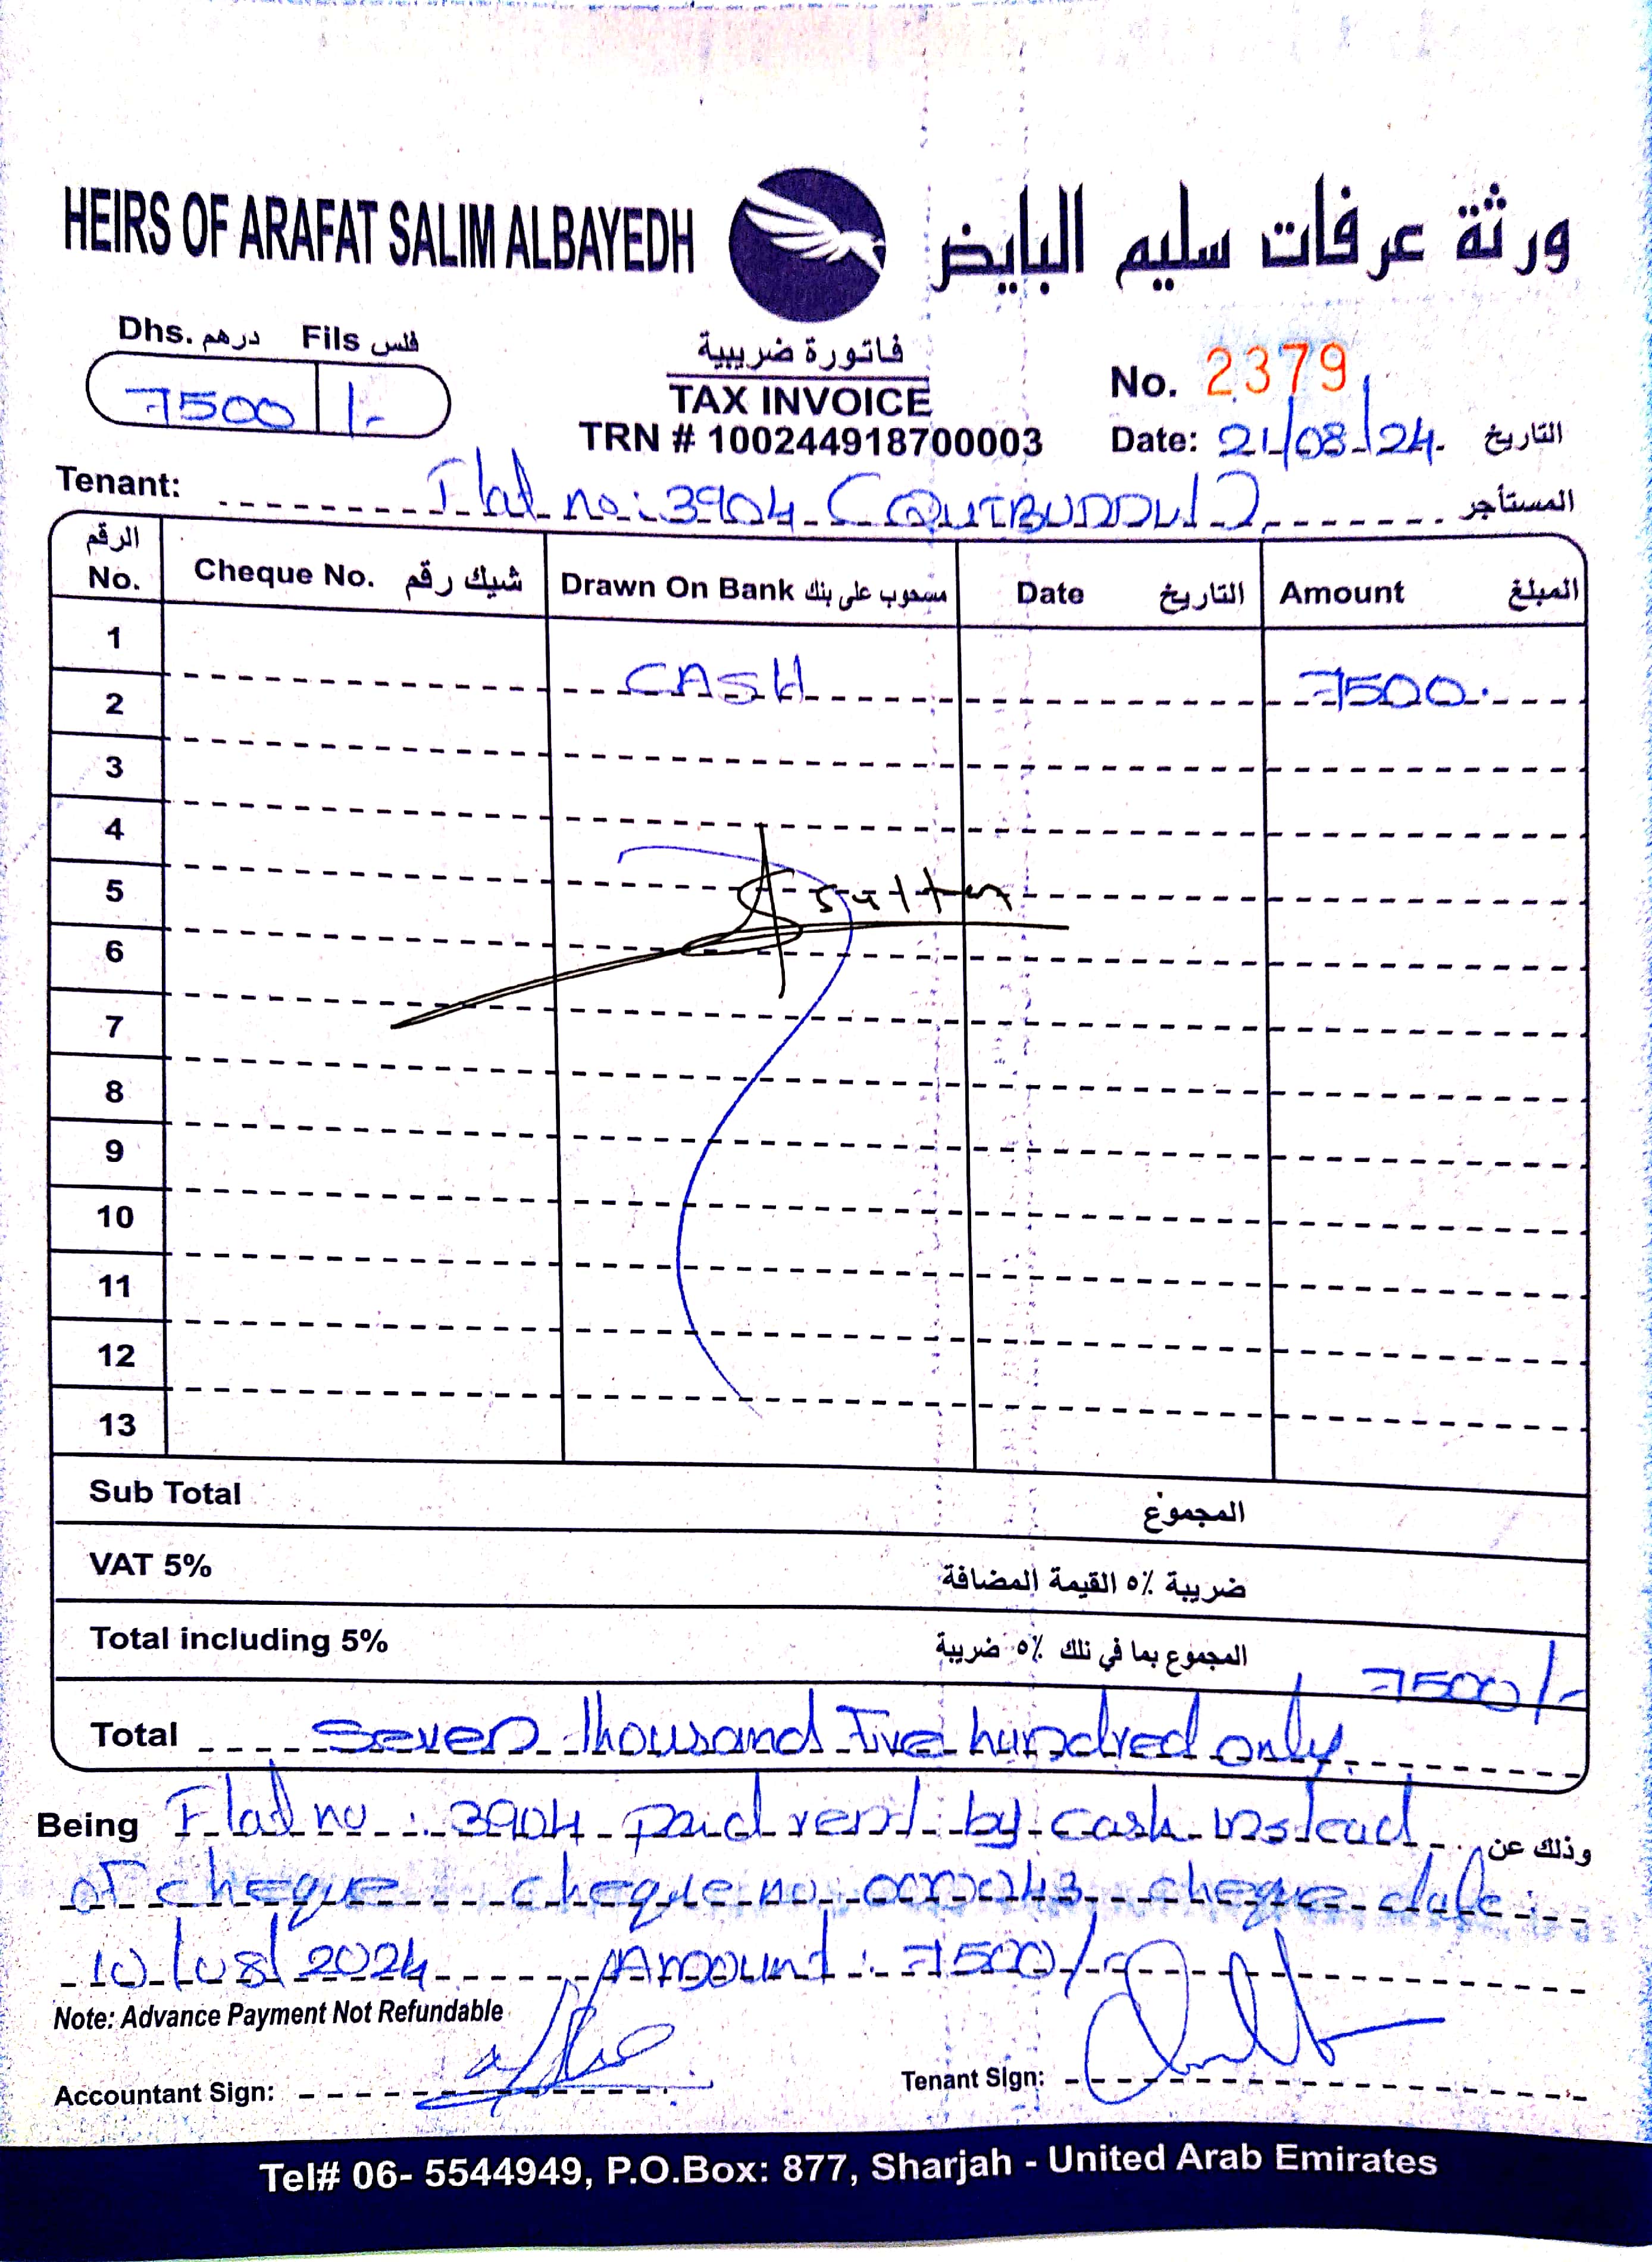 HEIRS OF ARAFAT SALIM ALBAYEDH ورثة عرفات سليم البايض
Dhs. درهم Fils فلس
7500 /-
فاتورة ضريبية
TAX INVOICE
TRN # 100244918700003
No. 2379
Date: 21/08/24. التاريخ
Tenant: Flat no: 3904 ( المستأجر
الرقم No. Cheque No. شيك رقم Drawn On Bank مسحوب على بنك Date التاريخ Amount المبلغ
1
2 CASH 7500.
3
4
5 sultan
6
7
8
9
10
11
12
13
Sub Total المجموع
VAT 5% ضريبة ٥٪ القيمة المضافة
Total including 5% المجموع بما في تلك ٥٪ ضريبة 7500/-
Total Seven thousand Five hundred only.
Being Flat no: 3904 paid rent by cash instead وذلك عن
of cheque cheque no 000043 cheque date:
10/08/2024 Amount: 7500/-
Note: Advance Payment Not Refundable
Accountant Sign: Tenant Sign:
Tel# 06- 5544949, P.O.Box: 877, Sharjah - United Arab Emirates